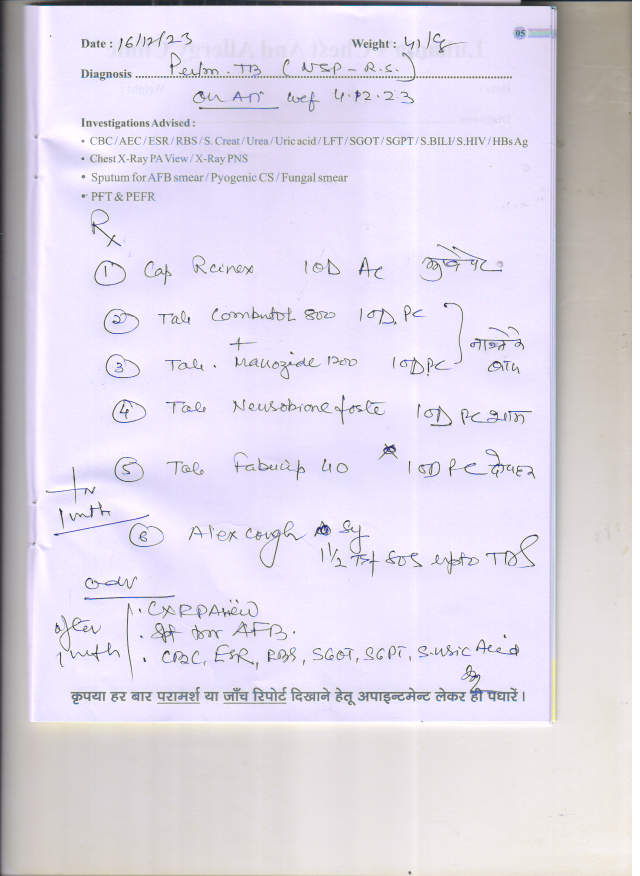 05
Date : 16/12/23 Weight : 41/8
Diagnosis Pulm. TB ( NSP - R.S. )
on ATT wef 4.12.23
Investigations Advised :
• CBC / AEC / ESR / RBS / S. Creat / Urea / Uric acid / LFT / SGOT / SGPT / S.BILI / S.HIV / HBs Ag
• Chest X-Ray PA View / X-Ray PNS
• Sputum for AFB smear / Pyogenic CS / Fungal smear
• PFT & PEFR
Rx
① Cap Rcinex 1OD AC पेट
② Tab Combutol 800 1OD, PC
+
③ Tab. Macozide 1200 1OD PC नाश्ते के बाद
④ Tab Neurobione forte 1OD PC शाम
⑤ Tab Fabucip 40 1OD PC दोपहर
1 mth
⑥ Alex cough Sy
1 1/2 tsf SOS upto TDS
adv
after 1 mth
. CXR PA view
. Spt for AFB.
. CBC, ESR, RBS, SGOT, SGPT, S. Uric Acid
कृपया हर बार परामर्श या जाँच रिपोर्ट दिखाने हेतू अपाइन्टमेन्ट लेकर ही पधारें।